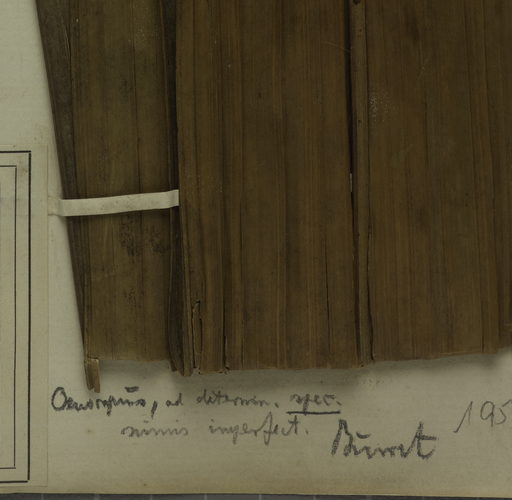 Oenocarpus, ad determin. spec.
nimis imperfect.
Burret 195